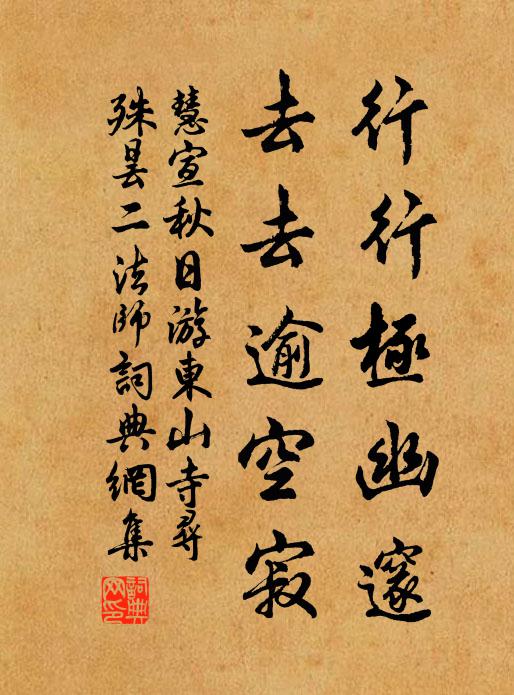 行行極幽邃
去去逾空寂
慧宣秋日游東山寺尋
殊曇二法師詞典網集
詞典
网印